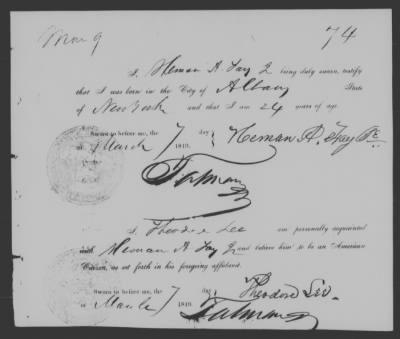 Mar 9
74
I, Heman A. Fay Jr being duly sworn, testify
that I was born in the City of Albany State
of New York and that I am 24 years of age.
Sworn to before me, the 7 day } Heman A. Fay Jr.
of March 1849.
Tatman
I, Theodore Lee am personally acquainted
with Heman A Fay Jr and believe him to be an American
Citizen, as set forth in his foregoing affidavit.
Sworn to before me, the 7 day } Theodore Lee.
of March 1849.
Tatman